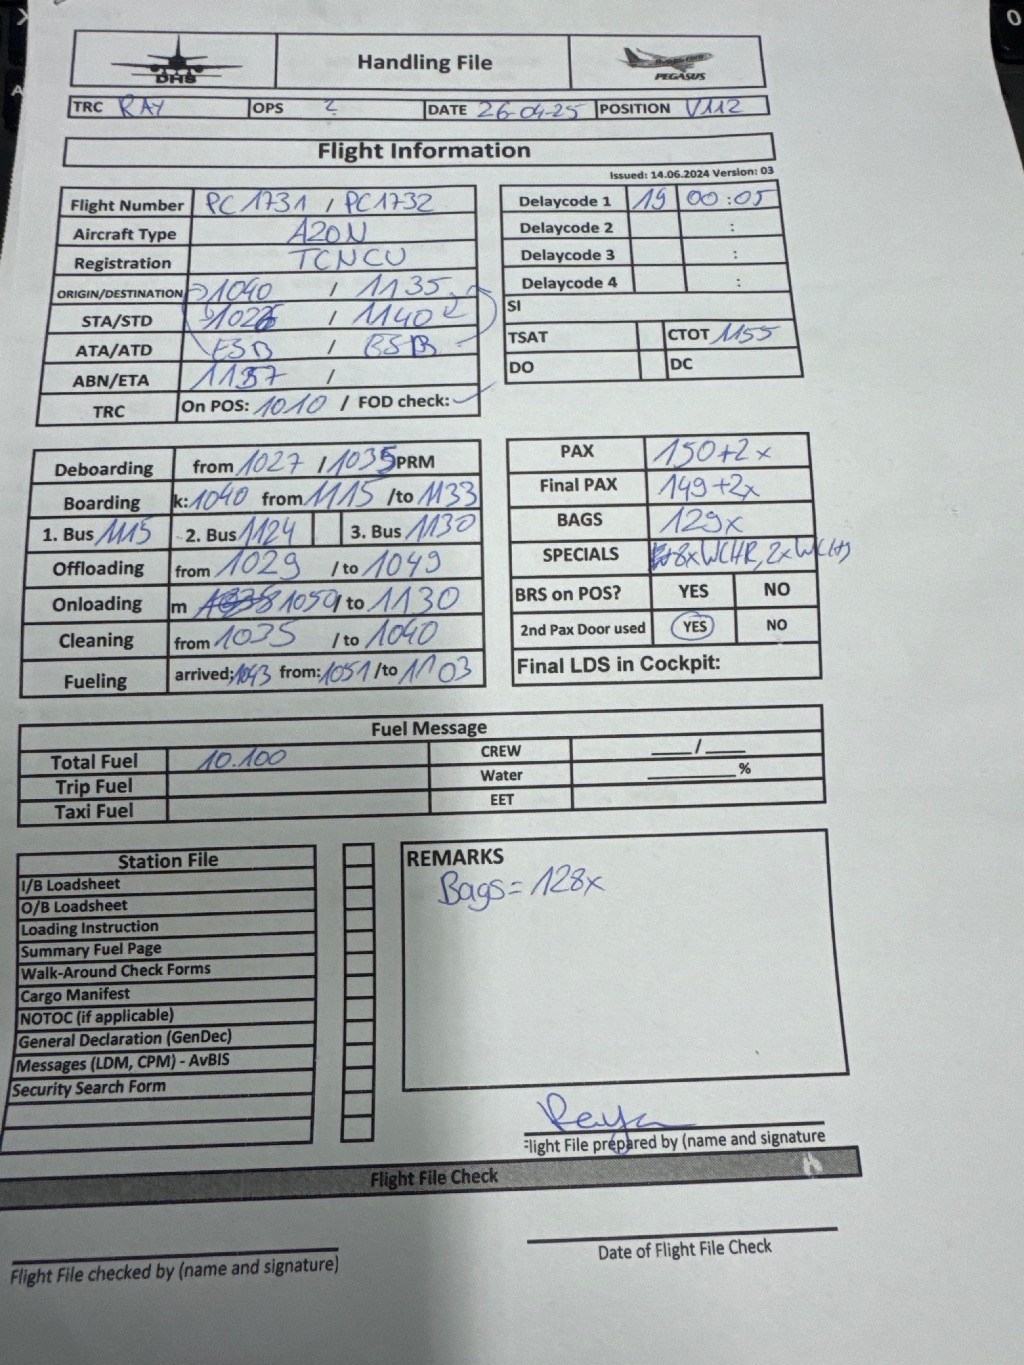 DHS
Handling File
PEGASUS
TRC RAY OPS 2 DATE 26-04-25 POSITION V112
Flight Information
Issued: 14.06.2024 Version: 03
Flight Number PC1731 / PC1732
Aircraft Type A20N
Registration TCNCU
ORIGIN/DESTINATION 1040 / 1135
STA/STD 1026 / 1140
ATA/ATD ESB / ESB
ABN/ETA 1137 /
TRC On POS: 1010 / FOD check:
Delaycode 1 19 00:05
Delaycode 2 :
Delaycode 3 :
Delaycode 4 :
SI
TSAT CTOT 1155
DO DC
Deboarding from 1027 / 1035 PRM
Boarding k: 1040 from 1115 /to 1133
1. Bus 1115 2. Bus 1124 3. Bus 1130
Offloading from 1029 / to 1049
Onloading m 1050 / to 1130
Cleaning from 1035 / to 1040
Fueling arrived: 1043 from: 1051 /to 1103
PAX 150+2x
Final PAX 149+2x
BAGS 129x
SPECIALS 8xWCHR, 2xWCHS
BRS on POS? YES NO
2nd Pax Door used YES NO
Final LDS in Cockpit:
Fuel Message
Total Fuel 10.100 CREW ___/___
Trip Fuel Water ______%
Taxi Fuel EET
Station File
I/B Loadsheet
O/B Loadsheet
Loading Instruction
Summary Fuel Page
Walk-Around Check Forms
Cargo Manifest
NOTOC (if applicable)
General Declaration (GenDec)
Messages (LDM, CPM) - AvBIS
Security Search Form
REMARKS
Bags = 128x
Flight File prepared by (name and signature
Flight File Check
Flight File checked by (name and signature)
Date of Flight File Check